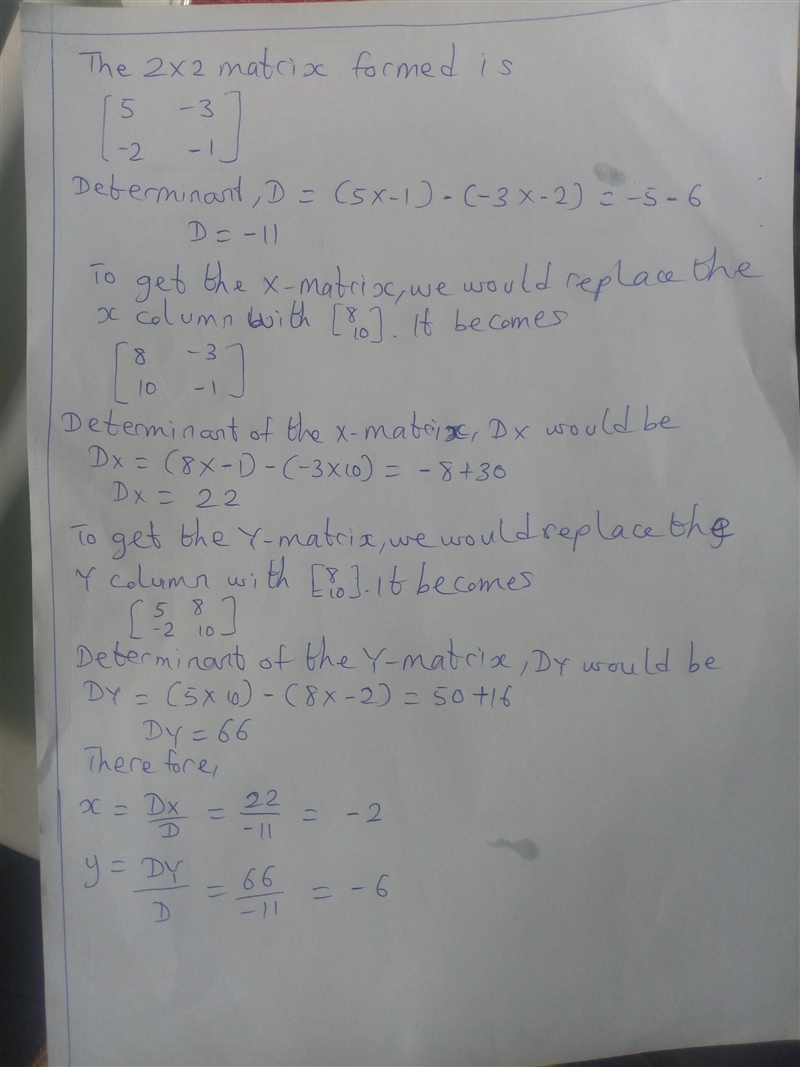 The 2x2 matrix formed is
[5 -3
-2 -1]
Determinant, D = (5x-1) - (-3x-2) = -5-6
D = -11
To get the X-matrix, we would replace the
x column with [8 10]. It becomes
[8 -3
10 -1]
Determinant of the X-matrix, Dx would be
Dx = (8x-1) - (-3x10) = -8+30
Dx = 22
To get the Y-matrix, we would replace the
Y column with [8 10]. It becomes
[5 8
-2 10]
Determinant of the Y-matrix, DY would be
DY = (5x10) - (8x-2) = 50+16
DY = 66
Therefore,
x = Dx/D = 22/-11 = -2
y = DY/D = 66/-11 = -6